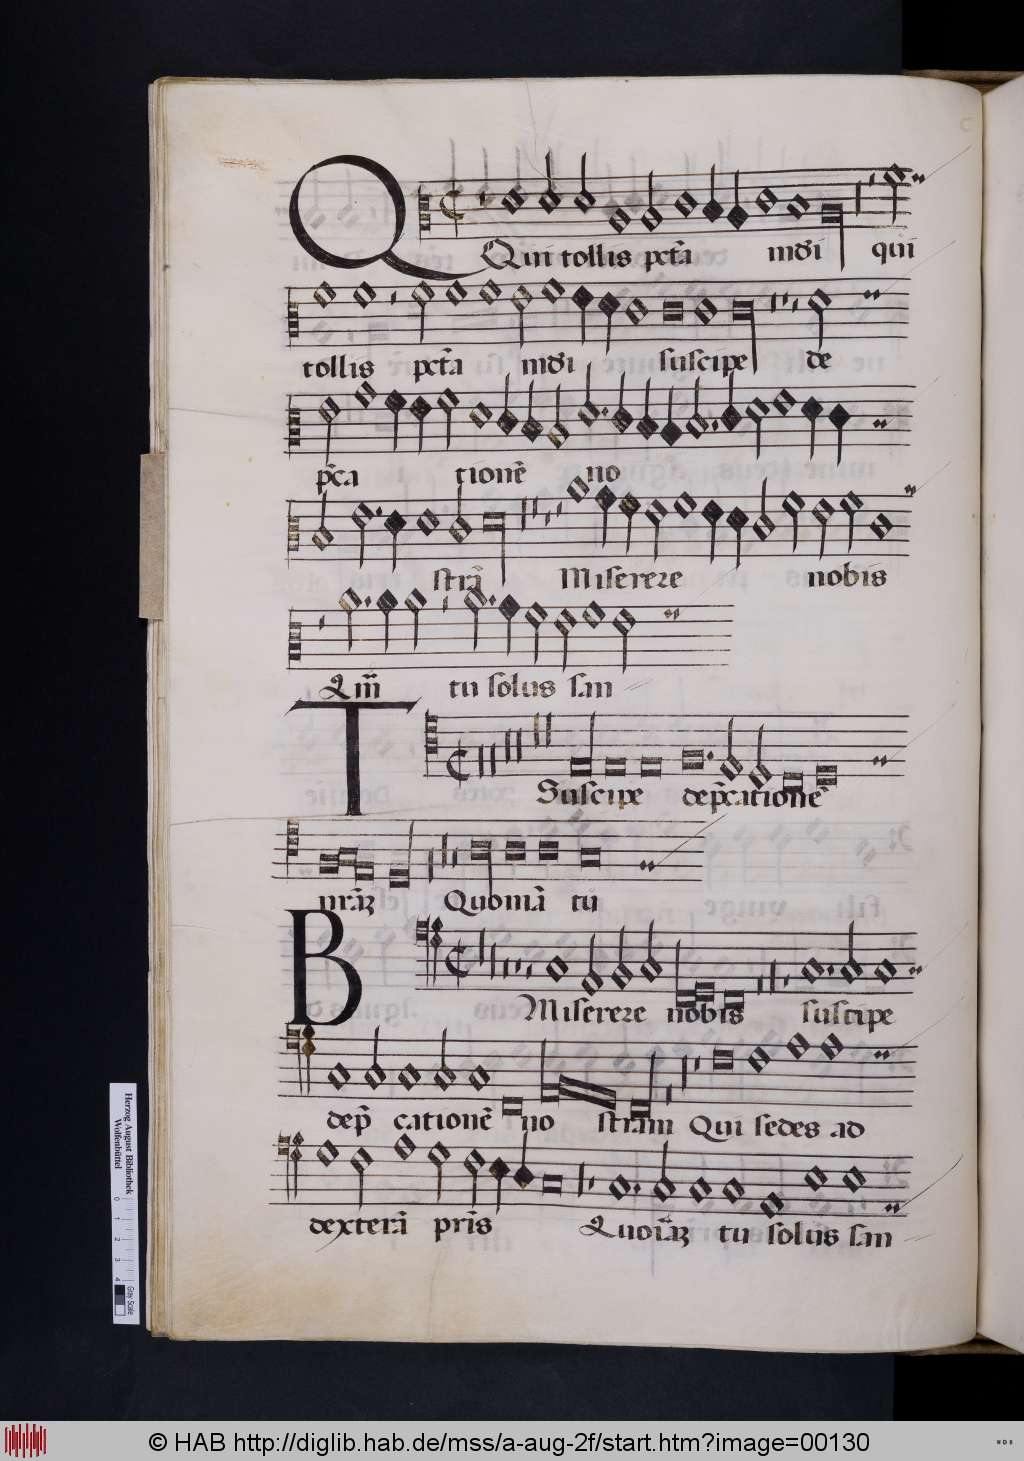 Qui tollis pctā mdi qui
tollis pctā mdi suscipe de
pca tionē no
strā Miserere nobis
Qm̄ tu solus san
T
Suscipe depcationē
nrāz Quoniā tu
B
Miserere nobis suscipe
dep cationē no stram Qui sedes ad
dexterā pris Quoiāz tu solus san
Herzog August Bibliothek
Wolfenbüttel
0 1 2 3 4
Gray Scale
© HAB http://diglib.hab.de/mss/a-aug-2f/start.htm?image=00130
WDB